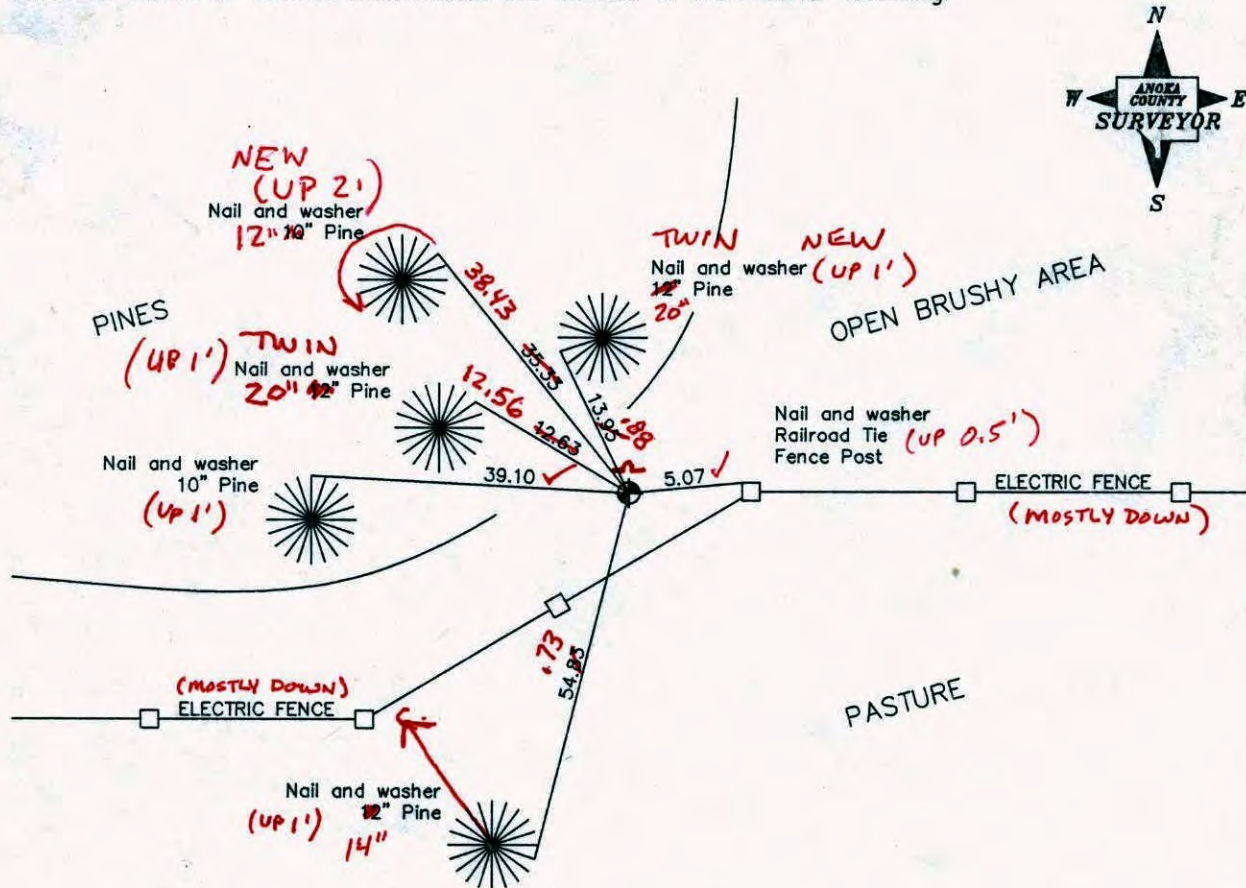 N
W
E
ANOKA
COUNTY
SURVEYOR
S
NEW
(UP 2')
Nail and washer
12" 10" Pine
38.43
35.33
TWIN NEW
Nail and washer (UP 1')
12" Pine
20"
OPEN BRUSHY AREA
PINES
(UP 1') TWIN
Nail and washer
20" 12" Pine
12.56
12.63
13.95
.88
Nail and washer
Railroad Tie (UP 0.5')
Fence Post
Nail and washer
10" Pine
(UP 1')
39.10
5.07
ELECTRIC FENCE
(MOSTLY DOWN)
.73
54.83
(MOSTLY DOWN)
ELECTRIC FENCE
PASTURE
Nail and washer
12" Pine
(UP 1')
14"